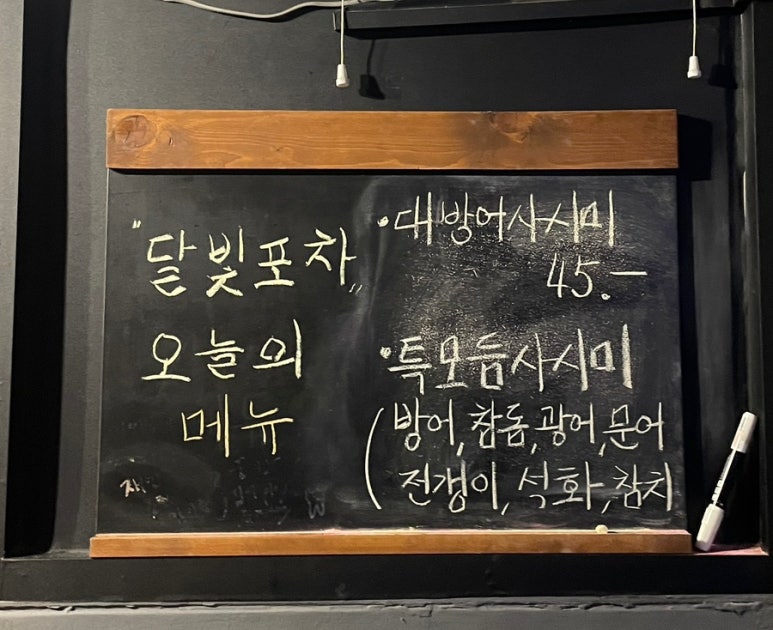 "달빛포차"
오늘의
메뉴
·대방어사시미
45.-
·특모듬사시미
(방어,참돔,광어,문어
전갱이,석화,참치